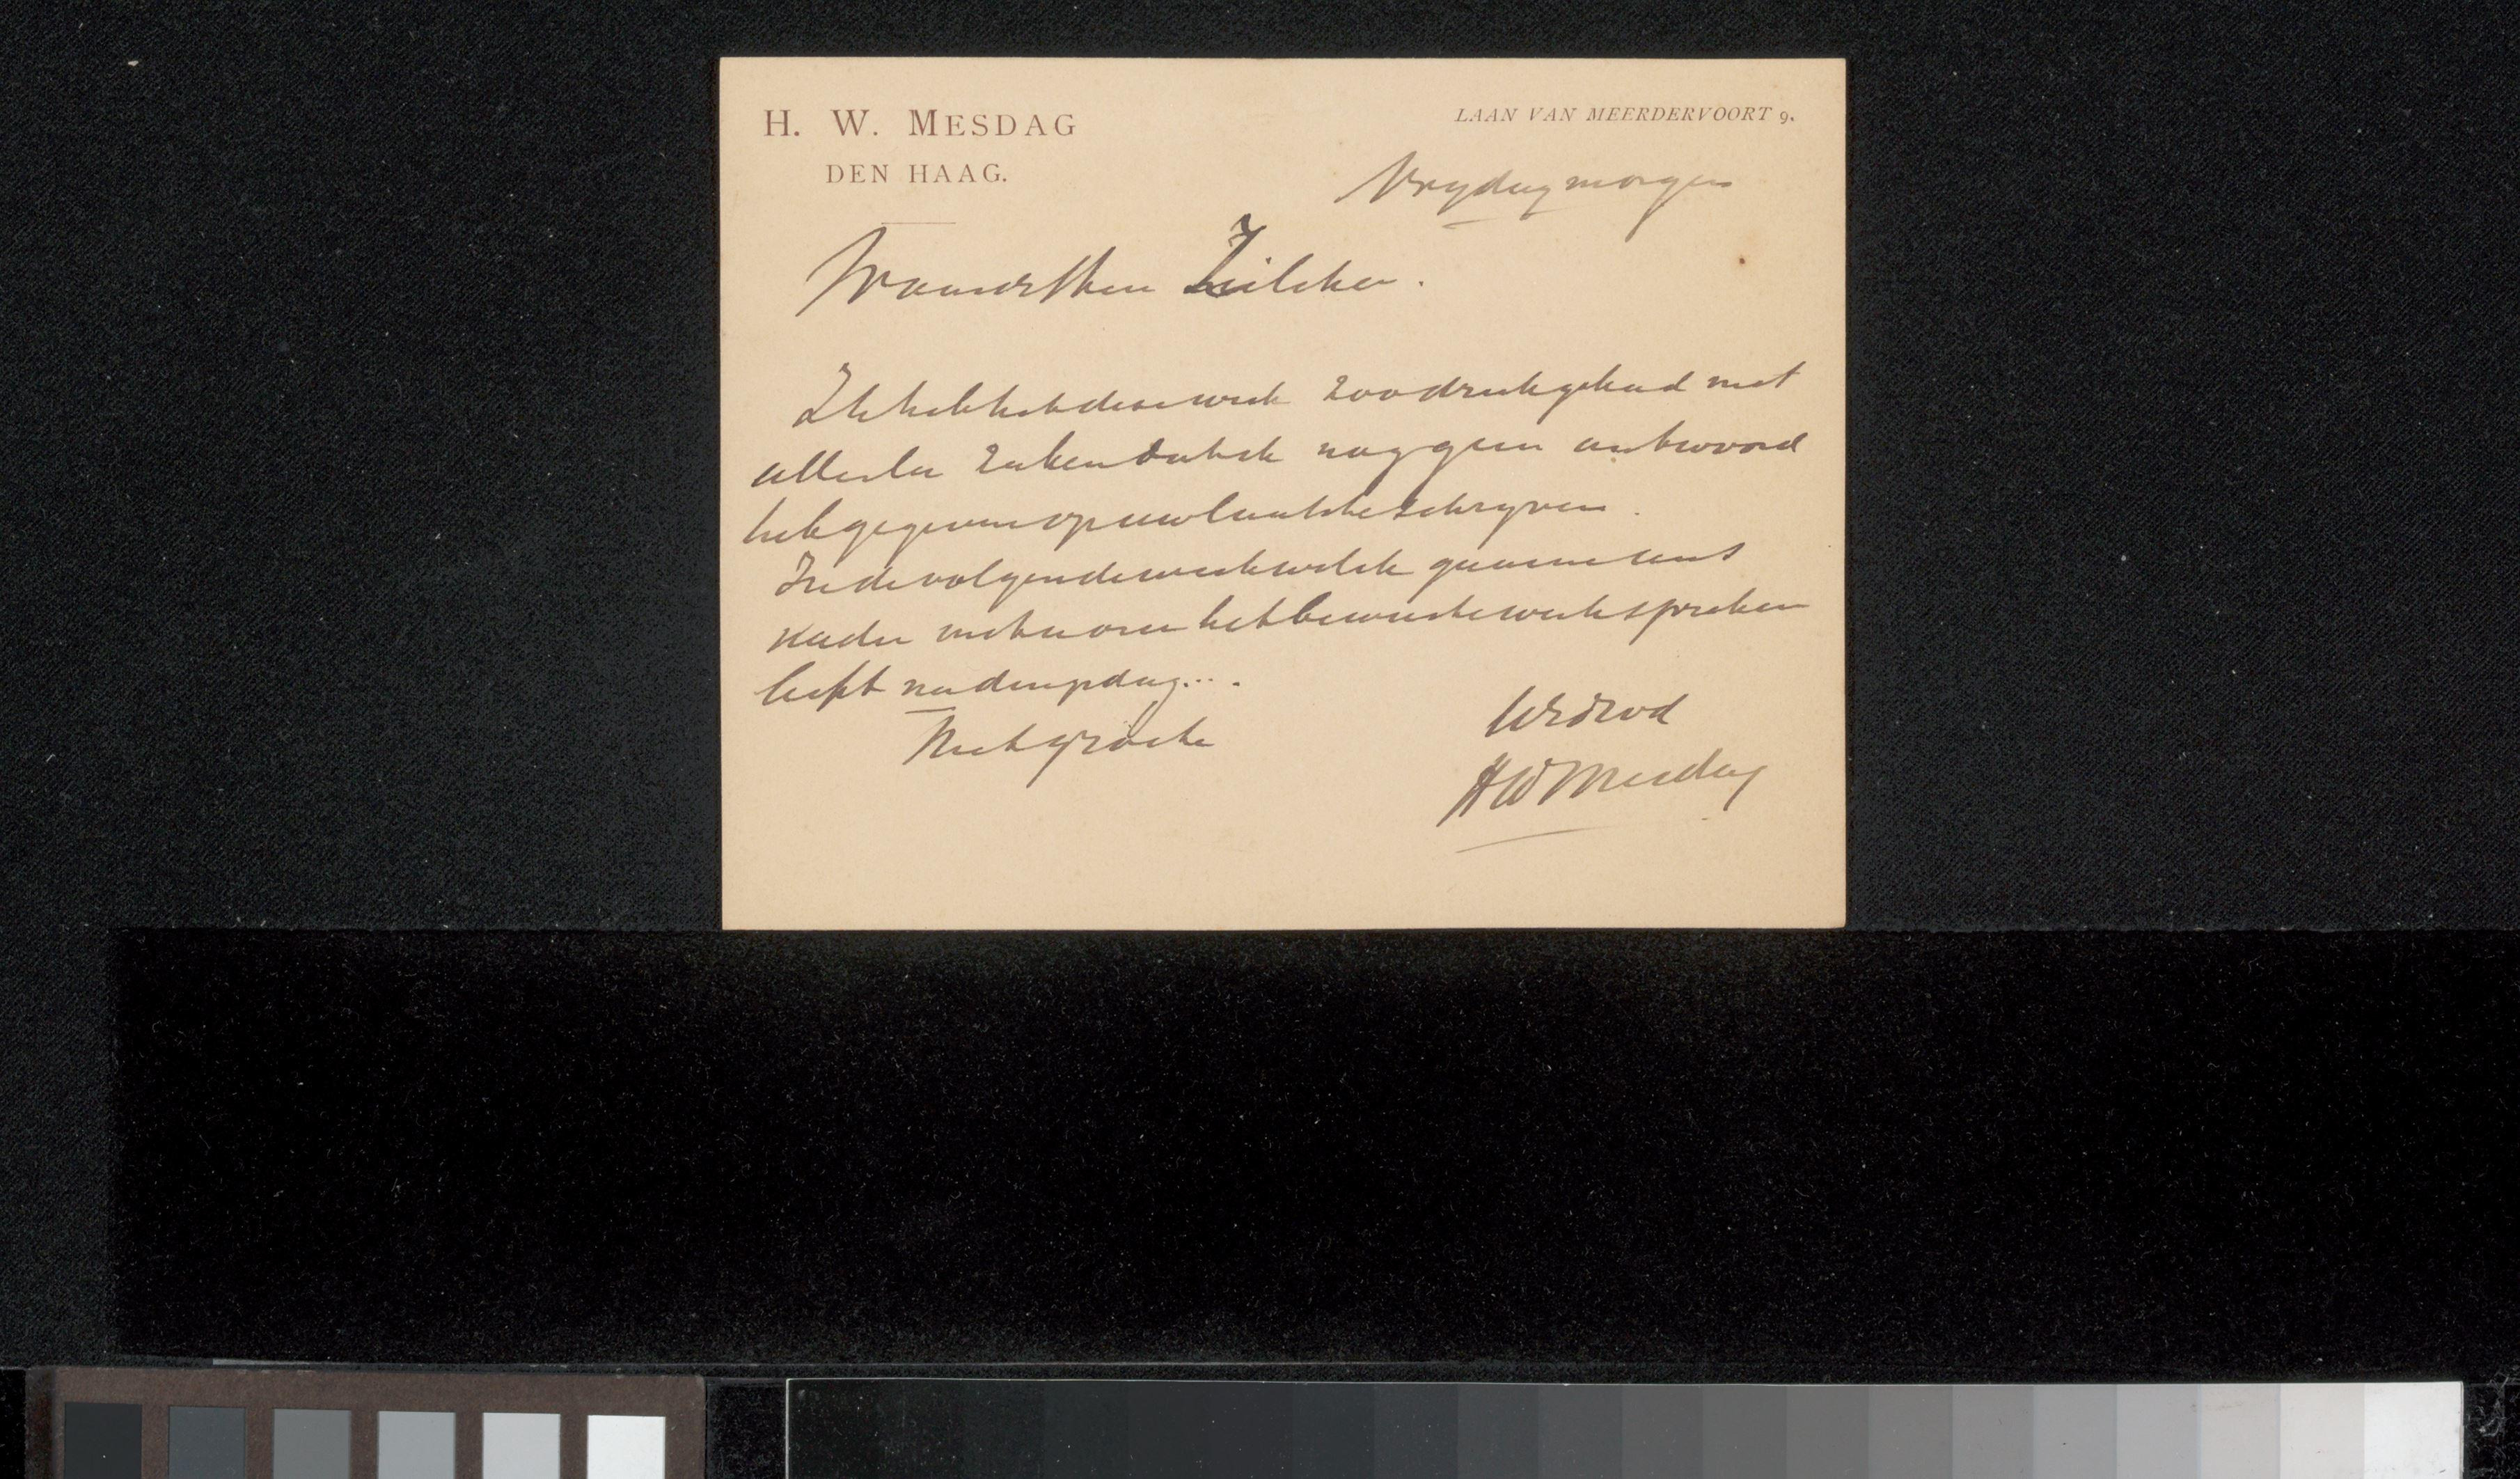 H. W. MESDAG
DEN HAAG.
LAAN VAN MEERDERVOORT 9.
Vrydag morgen
Waarde Heer Zilcken.
Ik heb het deze week zoo druk gehad met
allerlei zaken dat ik nog geen antwoord
heb gegeven op uw laatste schryven.
In de volgende week wil ik gaarne eens
nader met u over het bewuste werk spreken
liefst na dinsdag...
Met groete
UEd
HWMesdag